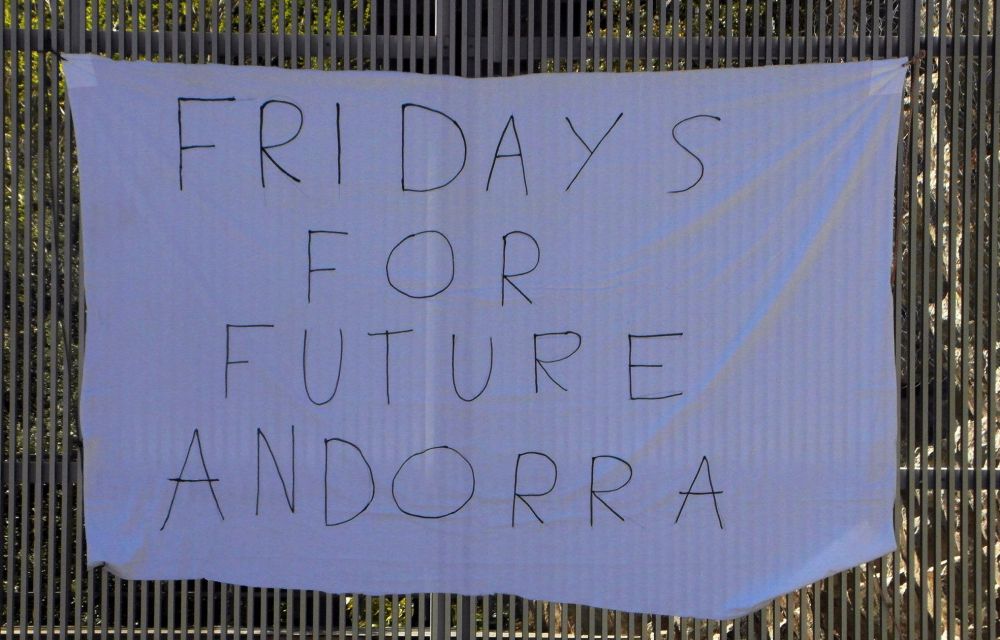 FRIDAYS
FOR
FUTURE
ANDORRA